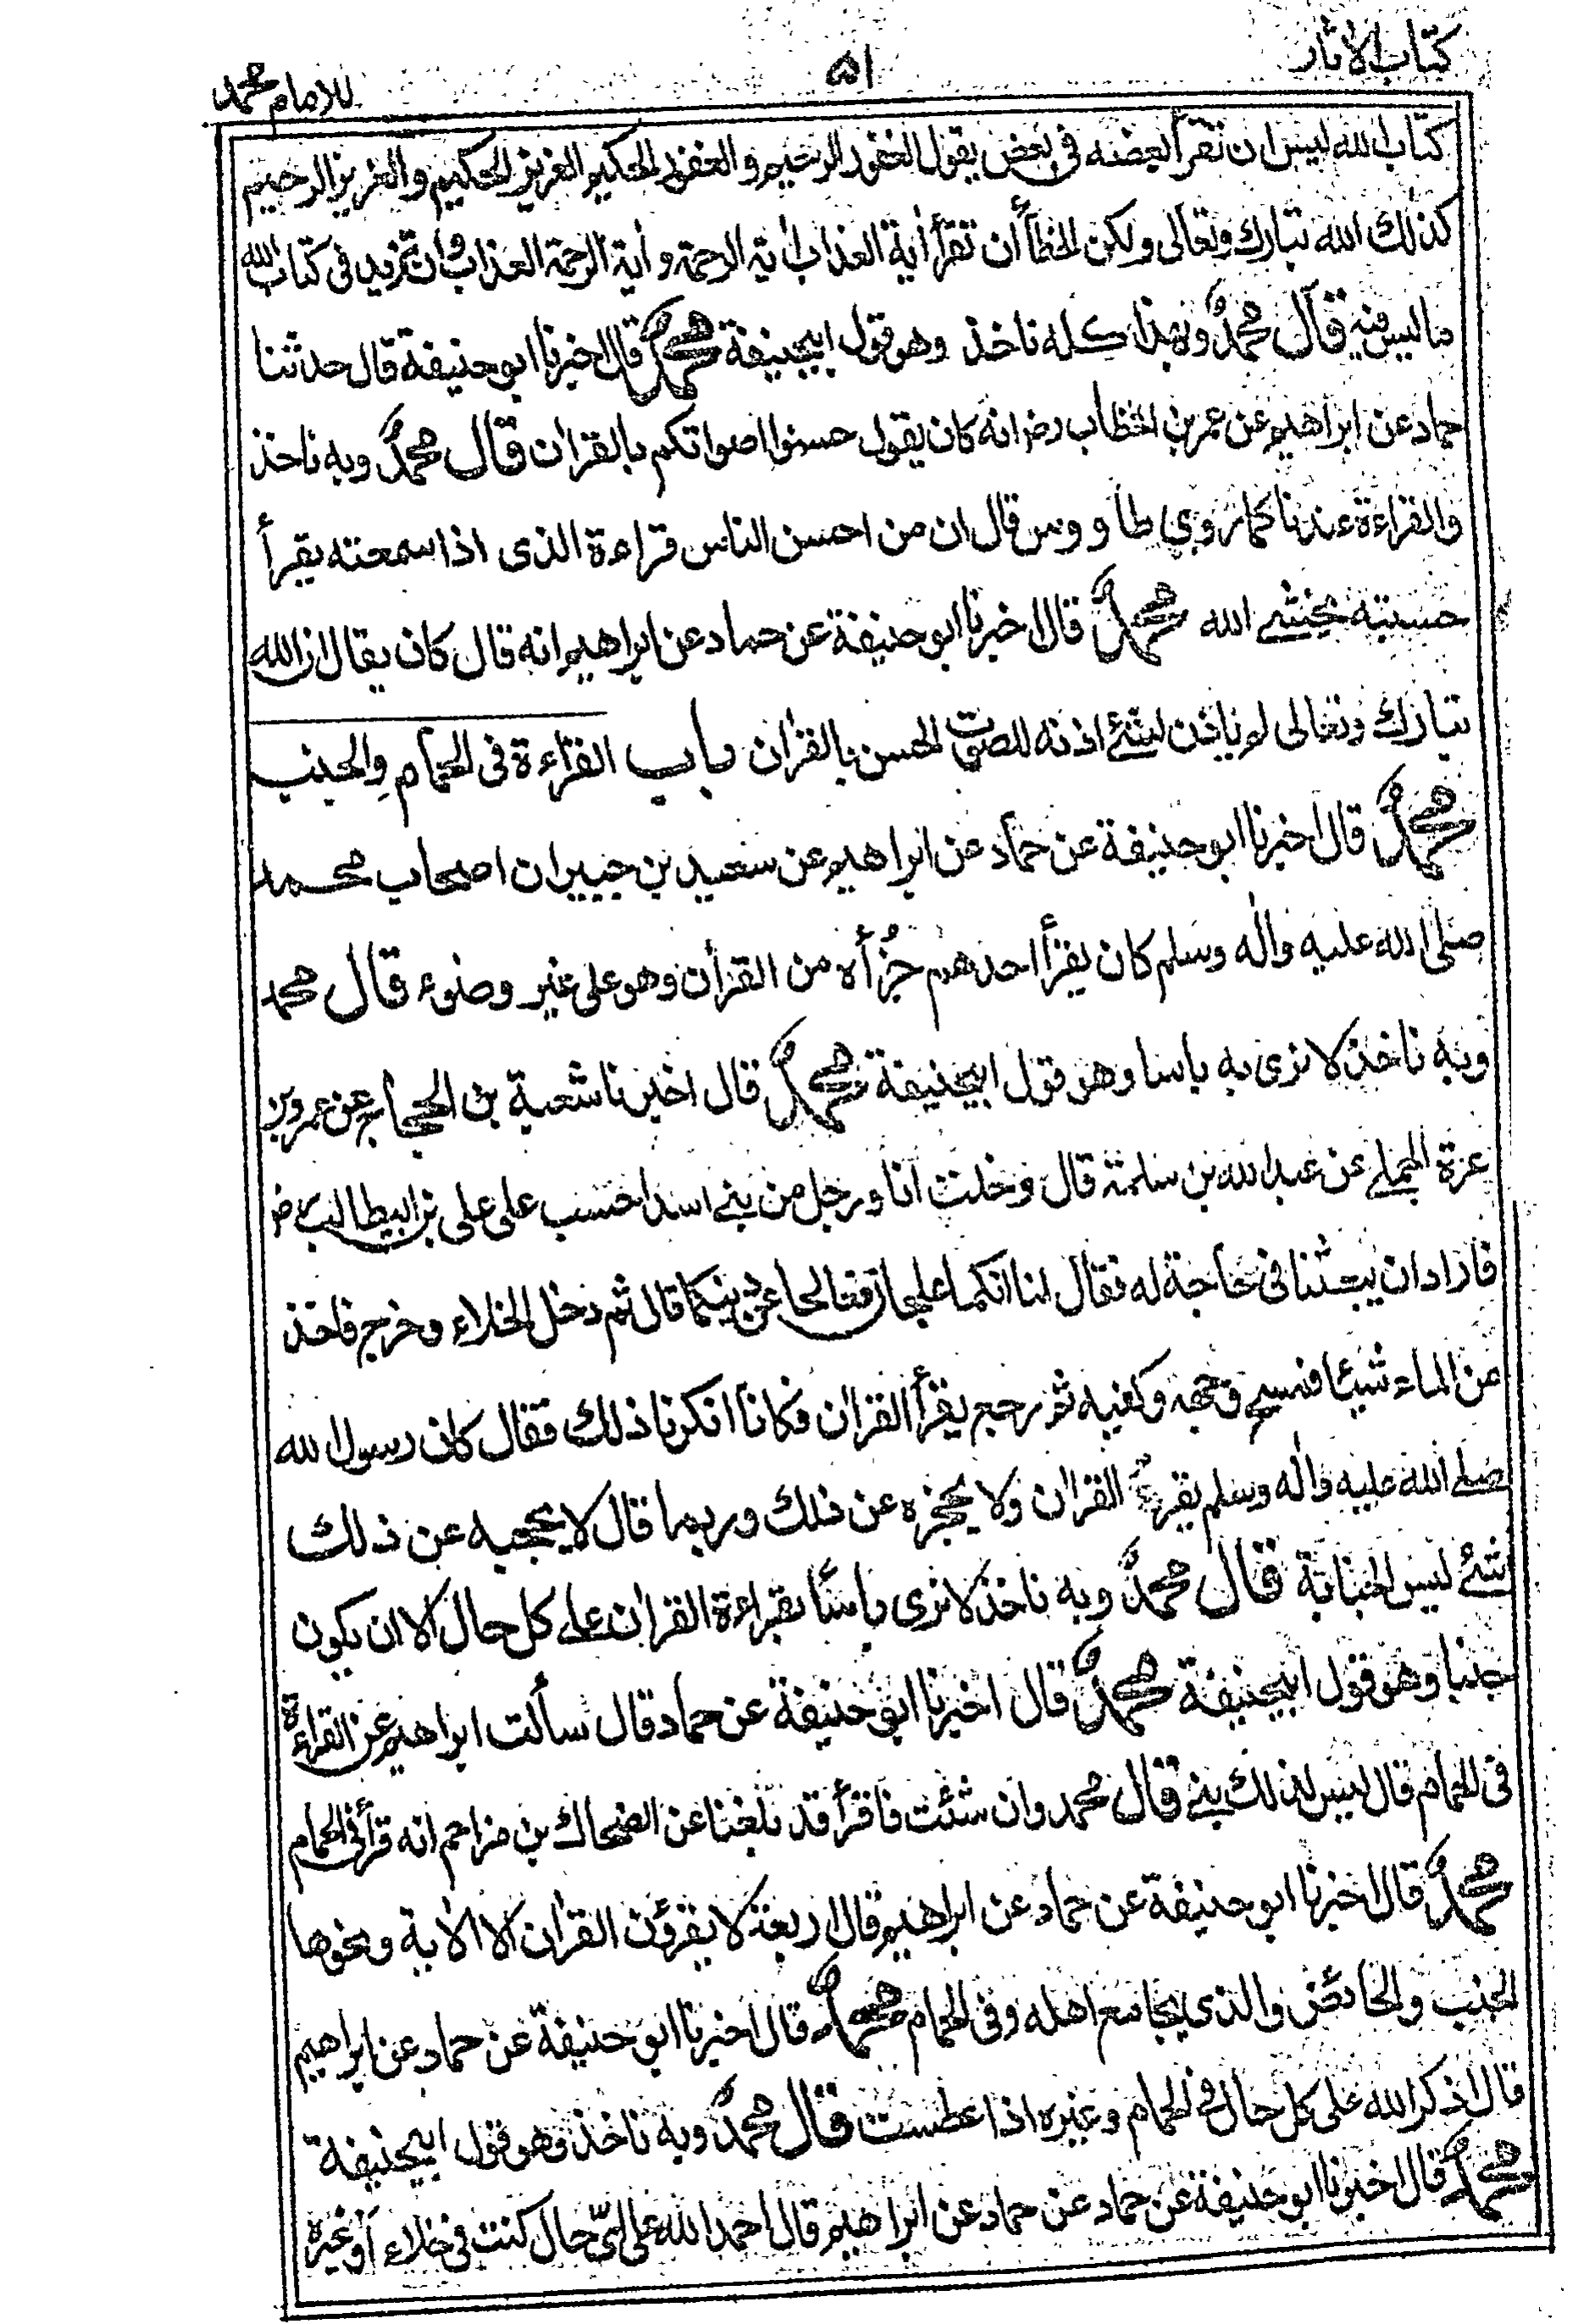 كتاب الاثار
٥١
للامام محمد
كتاب الله ليس ان تقرأ بعضه فى بعض يقول الغفور الرحيم والغفور الحكيم العزيز الحكيم والعزيز الرحيم
كذلك الله تبارك وتعالى ولكن الخطأ أن تقرأ أية العذاب اية الرحمة وأية الرحمة العذاب وان تزيد فى كتاب الله
ما ليس فيه قال محمد وبهذا كله ناخذ وهو قول ابيحنيفة محمد قال اخبرنا ابو حنيفة قال حدثنا
حماد عن ابراهيم عن عمر بن الخطاب رض انه كان يقول حسنوا اصواتكم بالقران قال محمد وبه ناخذ
والقراءة عندنا كما روى طاووس قال ان من احسن الناس قراءة الذى اذا سمعته يقرأ
حسبته يخشے الله محمد قال اخبرنا ابو حنيفة عن حماد عن ابراهيم انه قال كان يقال ان الله
تبارك وتعالى لم ياذن لشئ اذنه للصوت الحسن بالقران باب القراءة فى الحمام والجنب
محمد قال اخبرنا ابو حنيفة عن حماد عن ابراهيم عن سعيد بن جبير ان اصحاب محمد
صلى الله عليه واله وسلم كان يقرأ احدهم جزأه من القرأن وهو على غير وضوء قال محمد
وبه ناخذ لا نرى به باسا وهو قول ابيحنيفة محمد قال اخبرنا شعبة بن الحجاج عن عمرو بن
عزة الجملے عن عبد الله بن سلمة قال دخلت انا ورجل من بنے اسد احسب على على بن ابيطالب رض
فاراد ان يبعثنا فى حاجة له فقال لنا انكما علجان فعالجا عن دينكما قال ثم دخل الخلاء وخرج فاخذ
من الماء شيئا فمسح وجهه وكفيه ثم رجع يقرأ القران فكانا انكرنا ذلك فقال كان رسول الله
صلے الله عليه واله وسلم يقرء القران ولا يحجزه عن ذلك وربما قال لا يحجبه عن ذلك
شئ ليس الجنابة قال محمد وبه ناخذ لا نرى باسًا بقراءة القران علے كل حال الا ان يكون
جنبا وهو قول ابيحنيفة محمد قال اخبرنا ابو حنيفة عن حماد قال سألت ابراهيم عن القراءة
فى الحمام قال ليس لذلك بنے قال محمد وان شئت فاقرأ قد بلغنا عن الضحاك بن مزاحم انه قرأ فى الحمام
محمد قال اخبرنا ابو حنيفة عن حماد عن ابراهيم قال اربعة لا يقرؤن القران الا الاية ونحوها
الجنب والحائض والذى يجامع اهله وفى الحمام محمد قال اخبرنا ابو حنيفة عن حماد عن ابراهيم
قال اذكر الله على كل حال فى الحمام وغيره اذا عطست قال محمد وبه ناخذ وهو قول ابيحنيفة
محمد قال اخبرنا ابو حنيفة عن حماد عن حماد عن ابراهيم قال احمد الله على اىّ حال كنت فى خلاء أو غيره